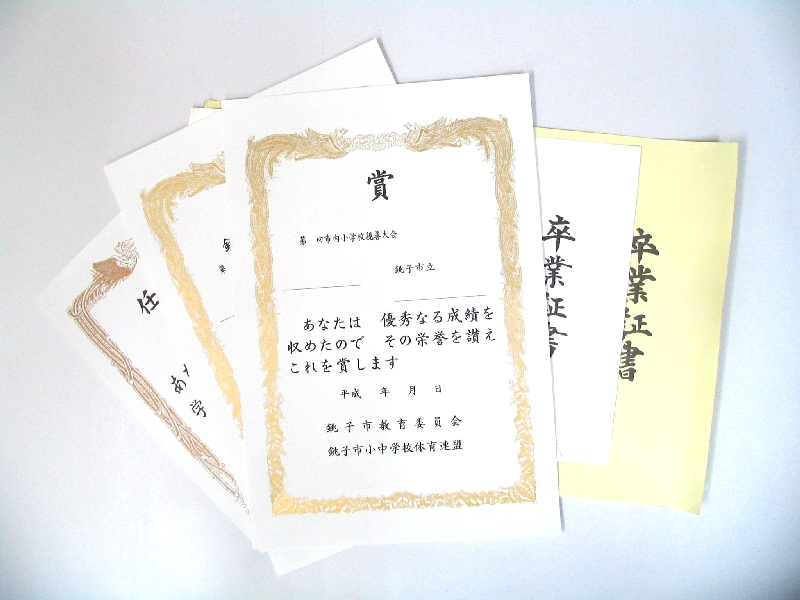 賞
第 回市内小学校選善大会
銚子市立
あなたは 優秀なる成績を
収めたので その栄誉を讃え
これを賞します
平成 年 月 日
銚子市教育委員会
銚子市小中学校体育連盟
任
あ
学
卒業証書
卒業証書